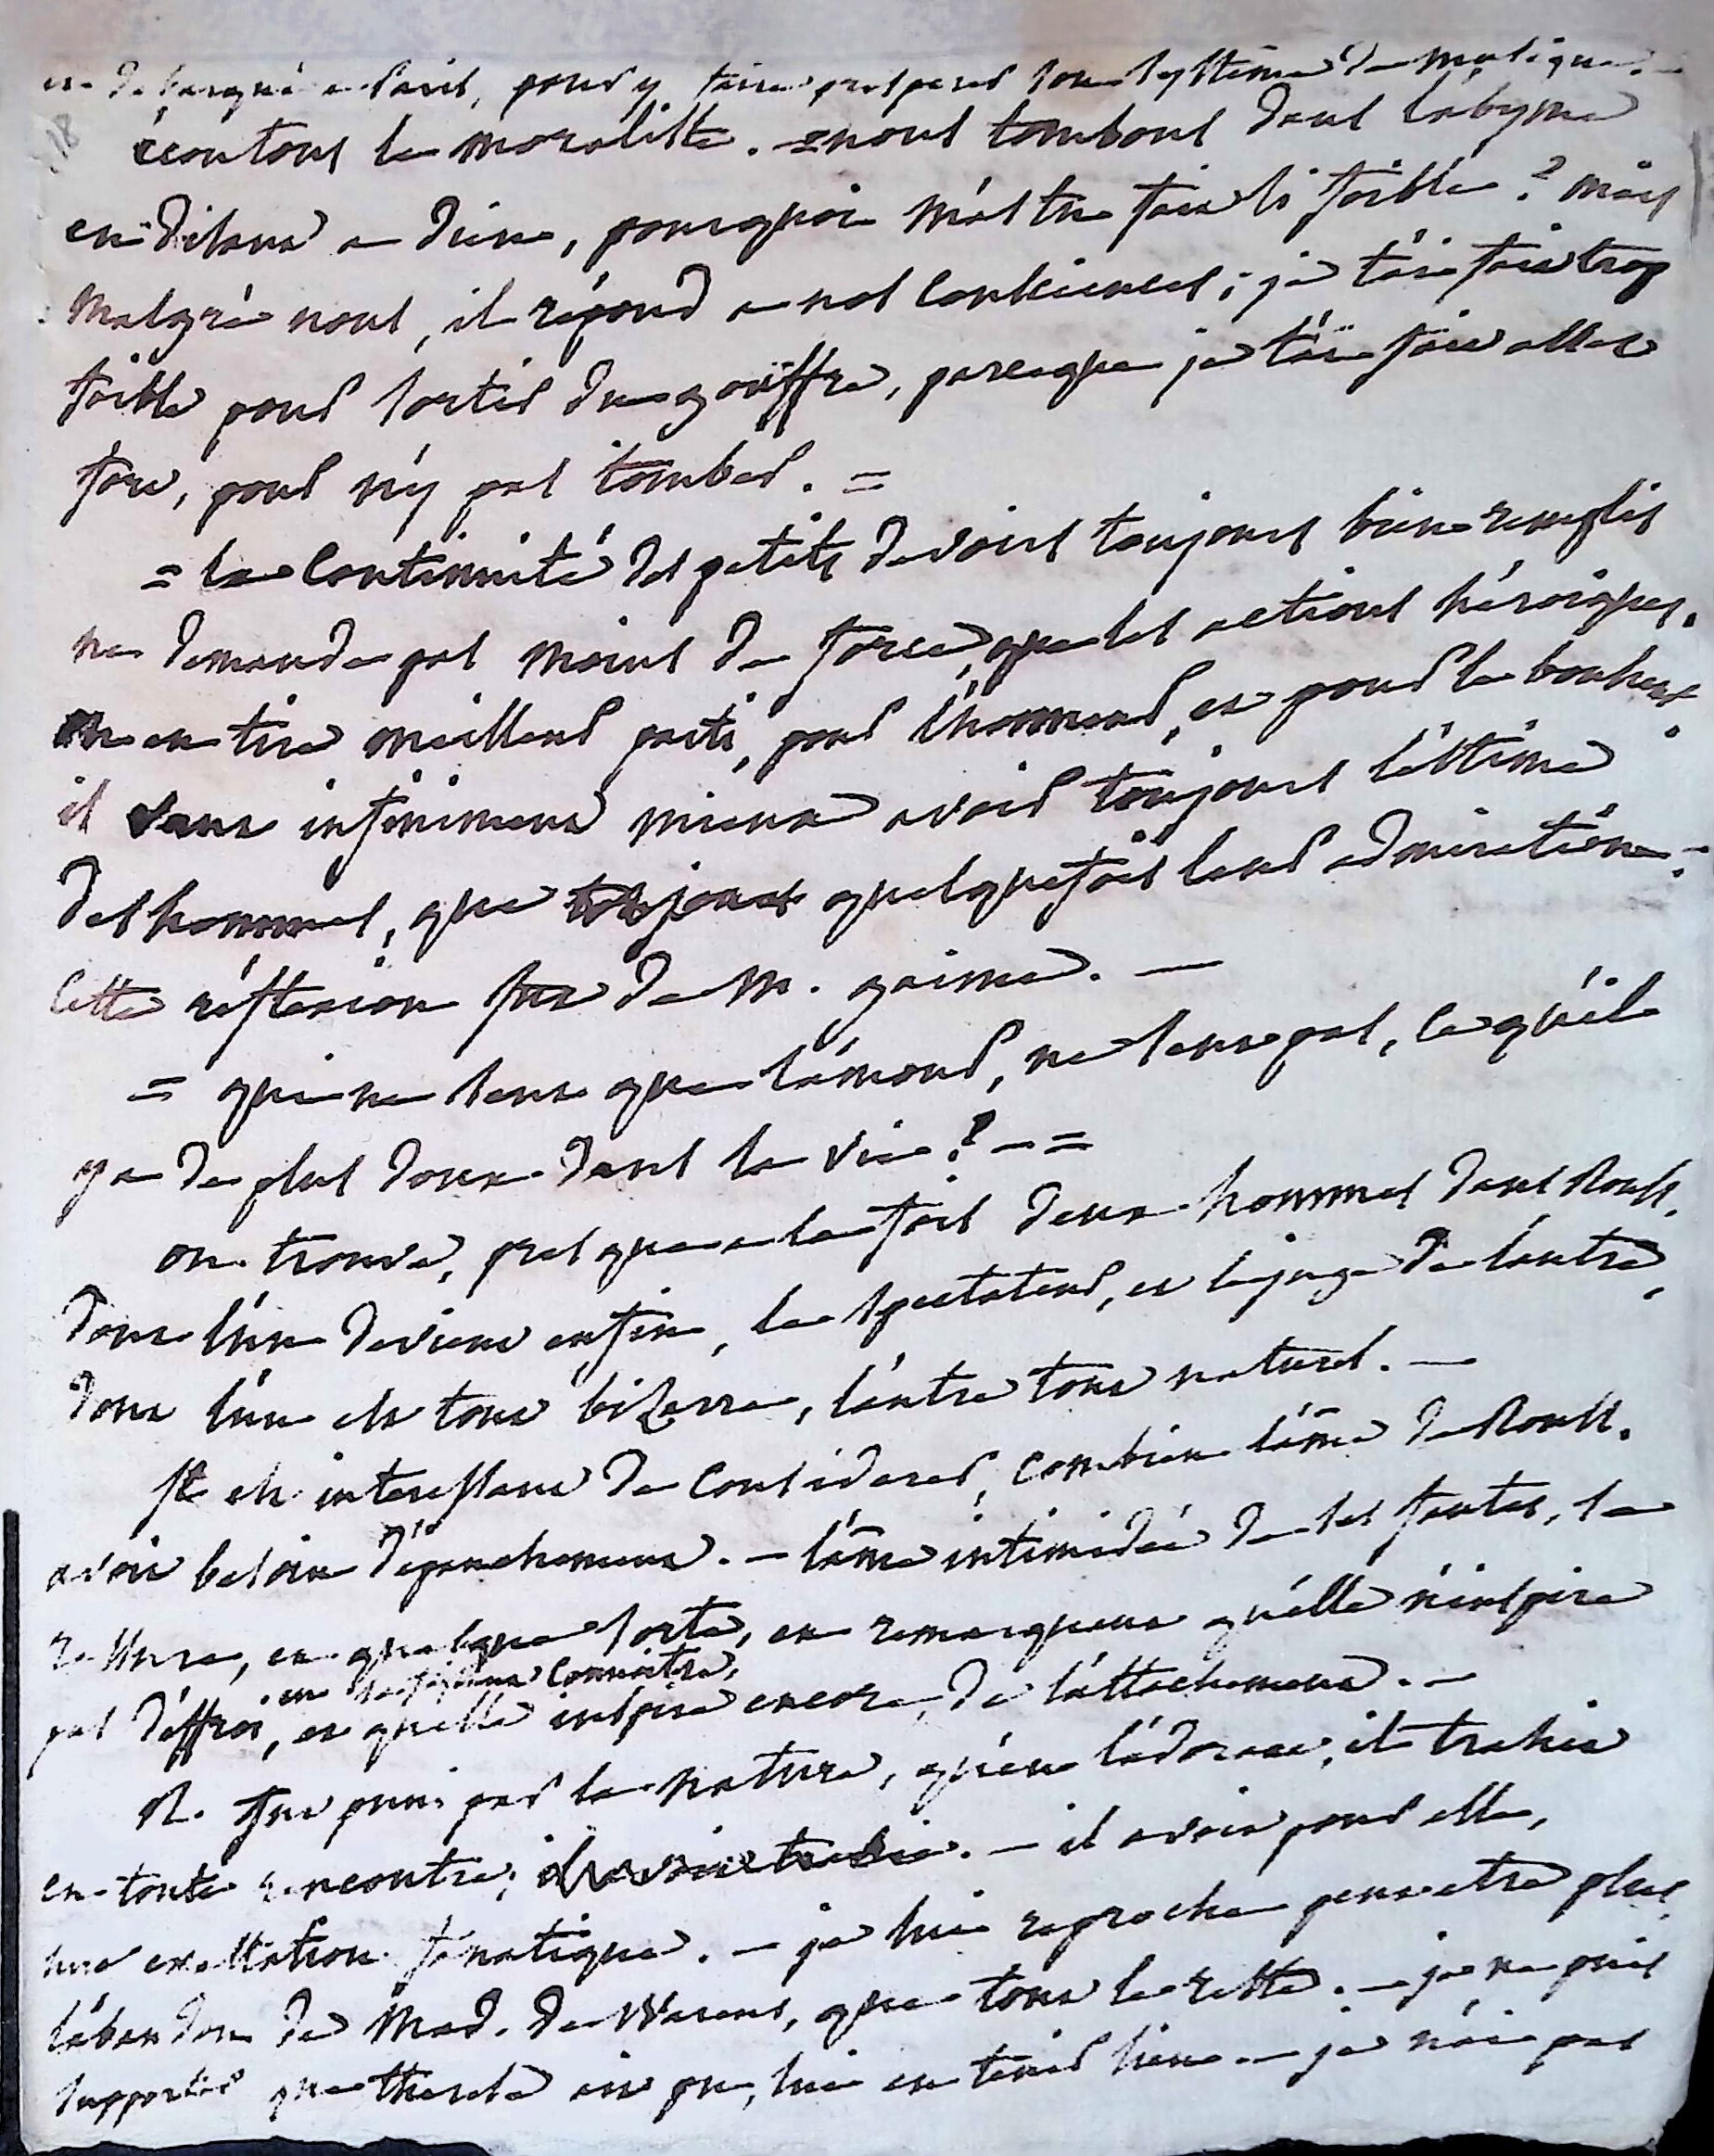 et debarqué a Paris, pour y faire prosperer son systême de musique. –
écoutons le moraliste. = nous tombons dans l'abyme
en disant a dieu, pourquoi m'as tu fait si foible? mais
malgré nous, il répond a nos consciences; je t'ai fait trop
foible pour sortir du gouffre, parceque je t'ai fait assez
fort, pour n'y pas tomber. =
= la continuité des petits devoirs toujours bien remplis
ne demande pas moins de force, que les actions héroiques.
on en tire meilleur parti, pour l'honneur, et pour le bonheur.
il vaut infiniment mieux avoir toujours l'estime
des hommes, que quelquefois leur admiration. =
cette réflexion fut de M. gaime. —
= qui ne sent que l'amour, ne sent pas, ce qu'il
y a de plus doux dans la vie? – =
on trouve, presque a la fois deux hommes dans Rouss.
dont l'un devient enfin, le spectateur, et le juge de l'autre,
dont l'un est tout bizarre, l'autre tout naturel. —
il est interessant de considerer, combien l'âme de Rouss.
avoit besoin d'épanchement. – l'âme intimidée de ses fautes, se
rassure, en quelque sorte, en remarquant qu'elle n'inspire
en se faisant connoitre,
pas d'effroi, et qu'elle inspire encore, de l'attachement. –
R. fut puni par la nature, qu'en l'adorant, il trahit
en toute rencontre; – il avoit pour elle,
une exaltation fanatique. – je lui reproche peut etre plus,
l'abandon de Mad. de Warens, que tout le reste. – je ne puis
supporter que therese ait pu, lui en tenir lieu. – je n'ai pas